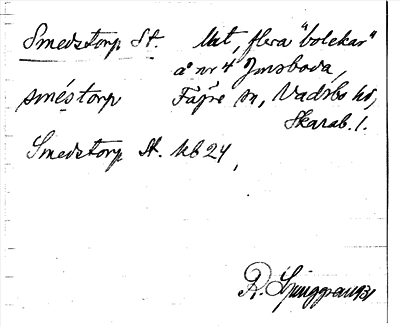 Smedstorp St. Ut, flera "bolckar"
å nr 4 Jmsboda,
sméstorp Fägre sn, Vadsbo hd,
Skarab. l.
Smedstorp St. kb 24,
R. Ljunggren 1931